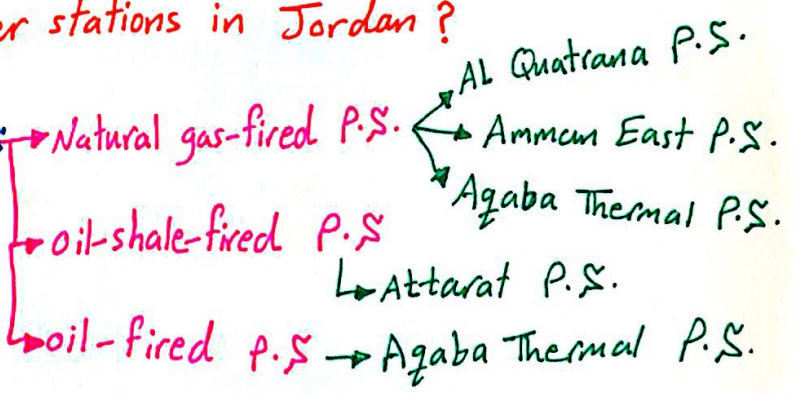 er stations in Jordan?
AL Quatrana P.S.
Natural gas-fired P.S.
Amman East P.S.
Aqaba Thermal P.S.
oil-shale-fired P.S
Attarat P.S.
oil-fired P.S → Aqaba Thermal P.S.